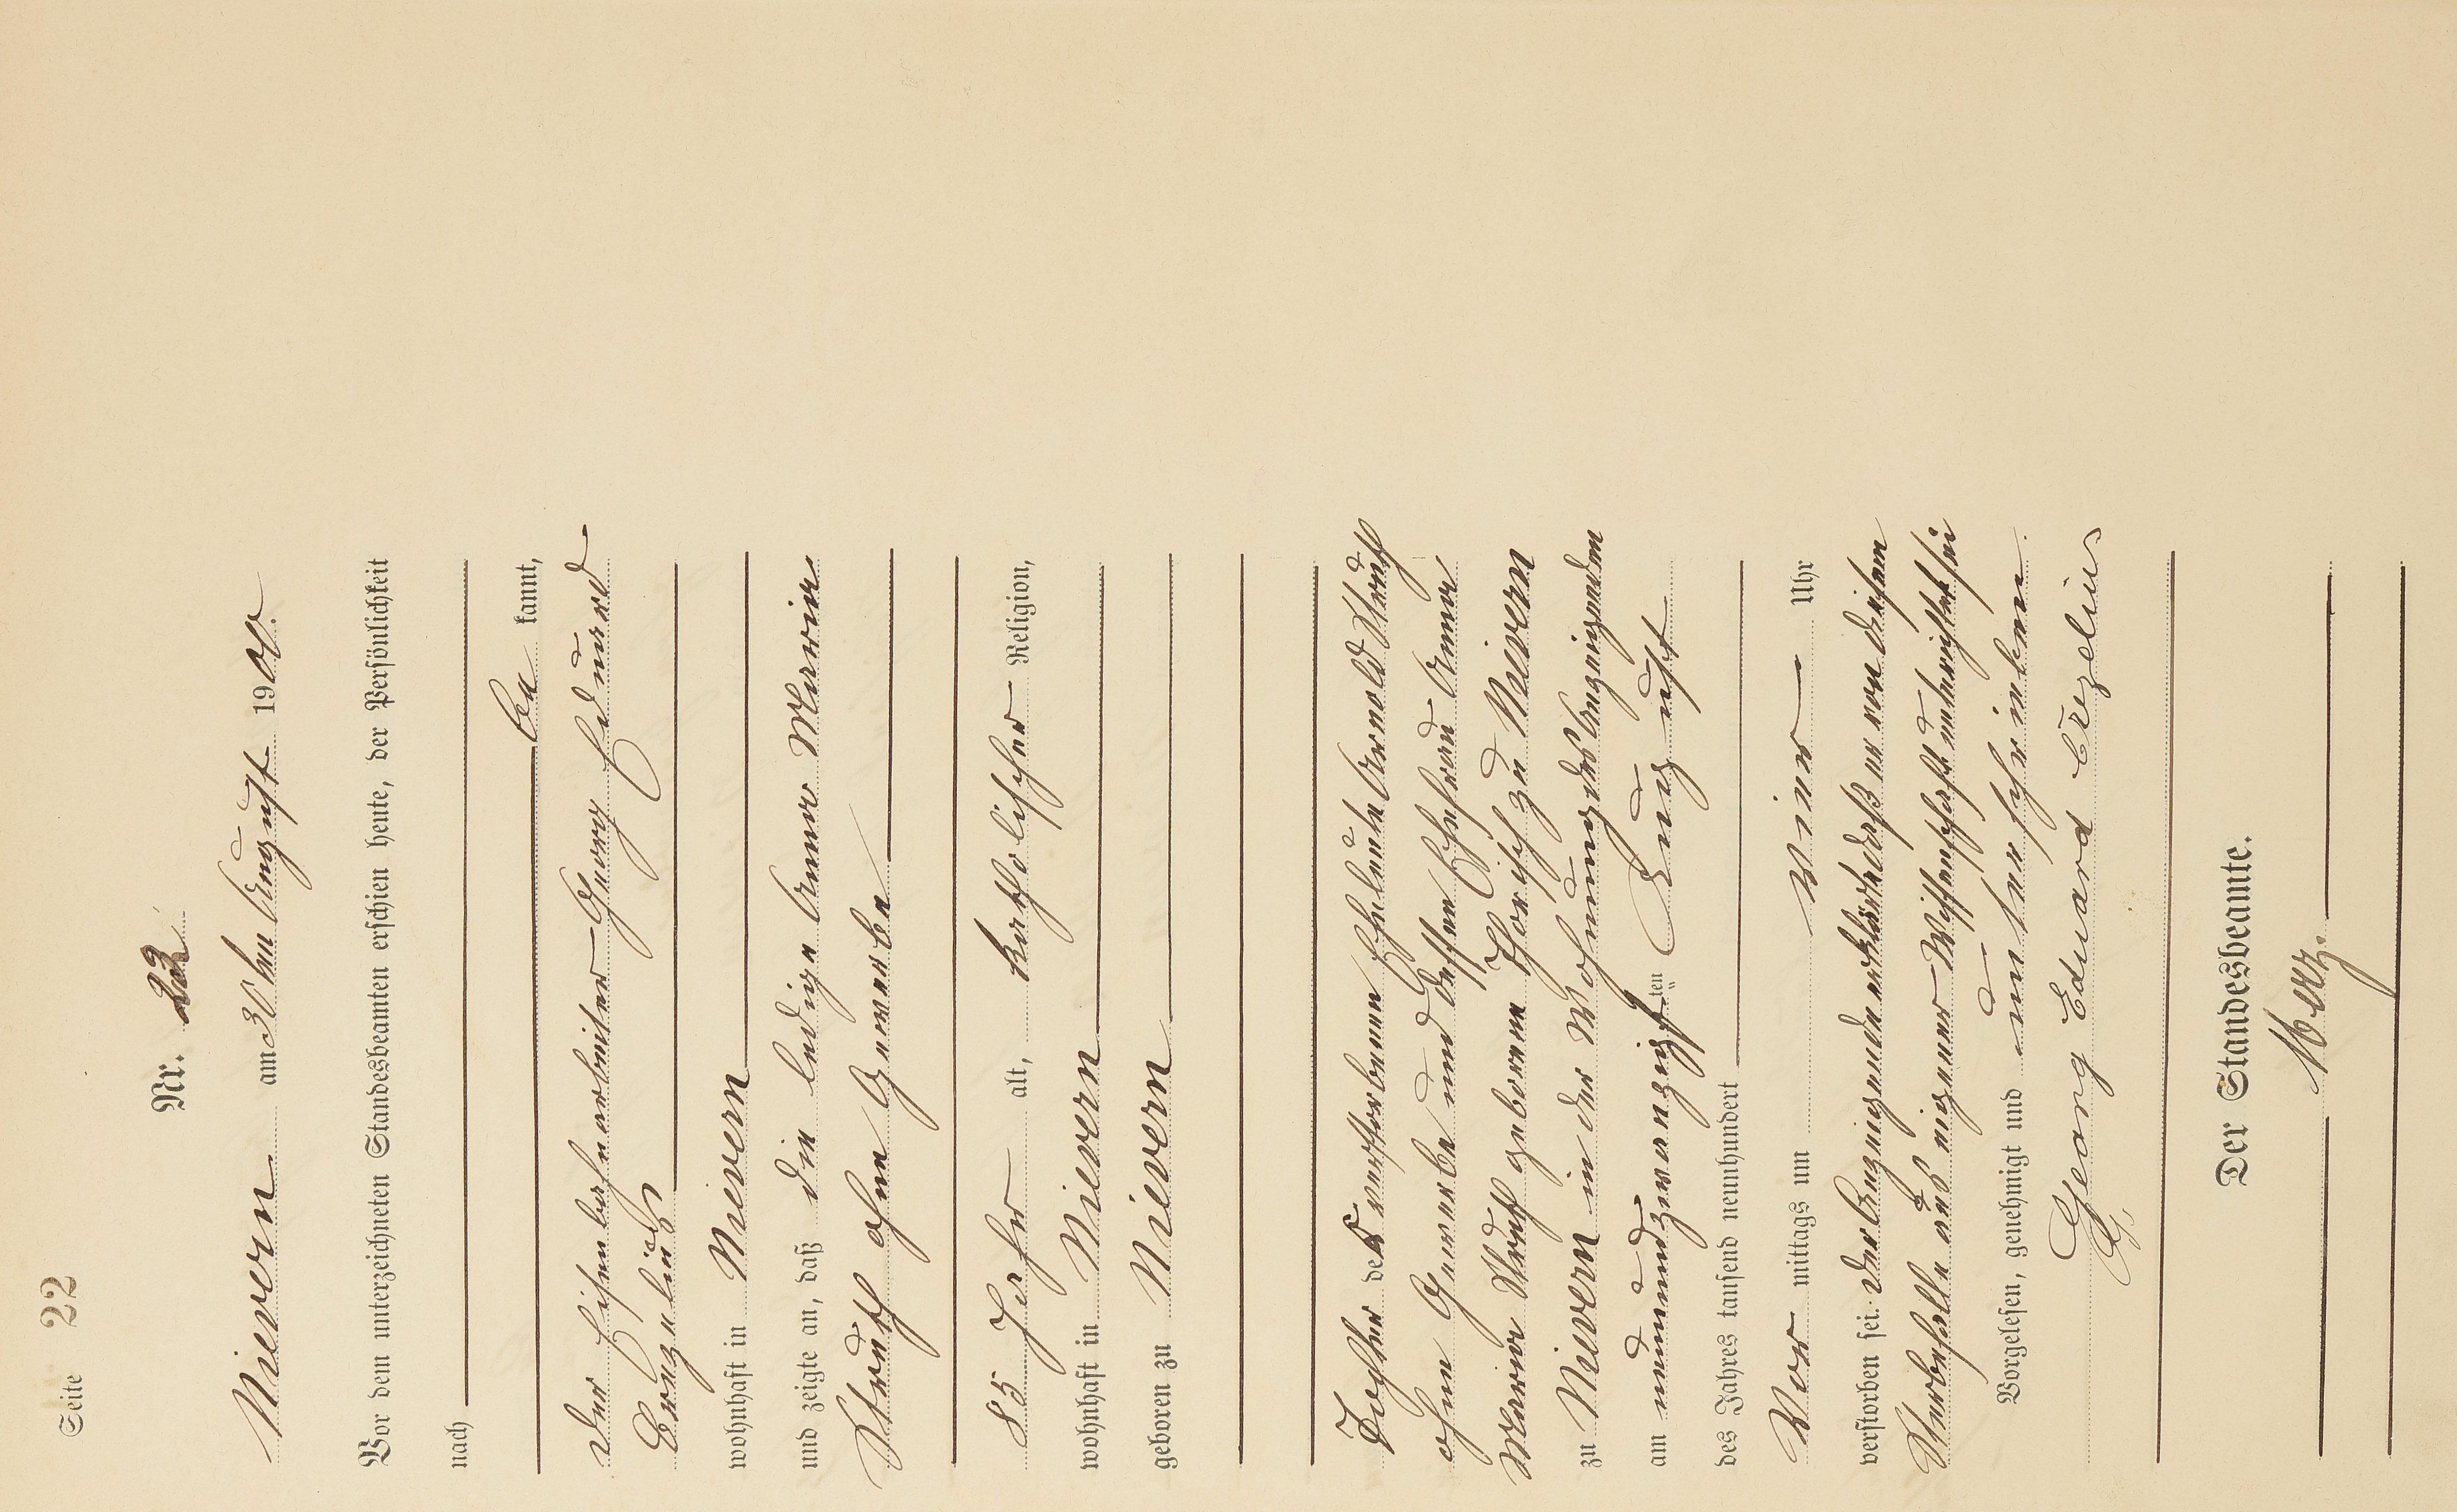 Seite 22
Nr. 22
Nievern am 30ten August 1900.
Vor dem unterzeichneten Standesbeamten erschien heute, der Persönlichkeit
nach
be kannt,
der Eisenbahnarbeiter Georg Eduard
wohnhaft in Nievern
und zeigte an, daß die ledige Anna Maria
Struth ohne Gewerbe
85 Jahre alt, katholischer Religion,
wohnhaft in Nievern
geboren zu Nievern
Tochter der verstorbenen Eheleute Arnold Struth
ohne Gewerbe und dessen Ehefrau Anna
Maria Struth geborene zu Nievern
zu Nievern in der Wohnung des Anzeigenden
am neunundzwanzigsten August
des Jahres tausend neunhundert
Vor mittags um vier Uhr
verstorben sei. Der Anzeigende erklärte daß er von diesem
Sterbefalle aus eigener Wissenschaft unterrichtet sei
Vorgelesen, genehmigt und unterschrieben.
Georg Eduard
Der Standesbeamte.